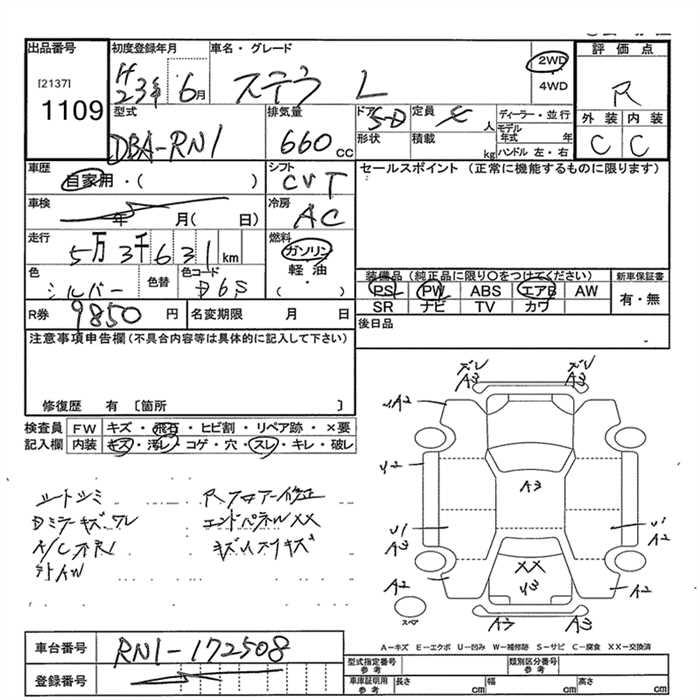 出品番号
[2137]
1109
初度登録年月
H
23年 6月
車名・グレード
ステラ L
2WD
4WD
評価点
R
外装 内装
C C
型式
DBA-RN1
排気量
660 cc
ドア 5-D
形状
定員 4 人
積載 kg
ディーラー・並行
モデル年式 年
ハンドル 左・右
車歴
自家用・( )
シフト
CVT
セールスポイント (正常に機能するものに限ります)
車検
年 月( 日)
冷房
AC
走行
5万 3千 6 3 1 km
燃料
ガソリン
軽油
( ・ )
色
シルバー
色替
色コード
D6S
装備品 (純正品に限り○をつけてください)
PS PW ABS エアB AW
SR ナビ TV カワ
新車保証書
有・無
R券
9850 円
名変期限 月 日
後日品
注意事項申告欄 (不具合内容等は具体的に記入して下さい)
修復歴 有 〔箇所 〕
検査員
記入欄
FW キズ・飛石・ヒビ割・リペア跡・×要
内装 キズ・汚レ・コゲ・穴・スレ・キレ・破レ
シートシミ
Dミラーキズワレ
A/CオRI
Rフロアー修正
エンドパネルXX
ズレ
A3
ズレ
A3
A2
A3
U1
A3
U1
A3
A2
XX
A2
A3
A3
スペア
A-キズ E-エクボ U-凹み W-補修跡 S-サビ C-腐食 XX-交換済
車台番号
RN1-172508
登録番号
型式指定番号
参考
類別区分番号
参考
車庫証明用
参考
長さ cm 幅 cm 高さ cm